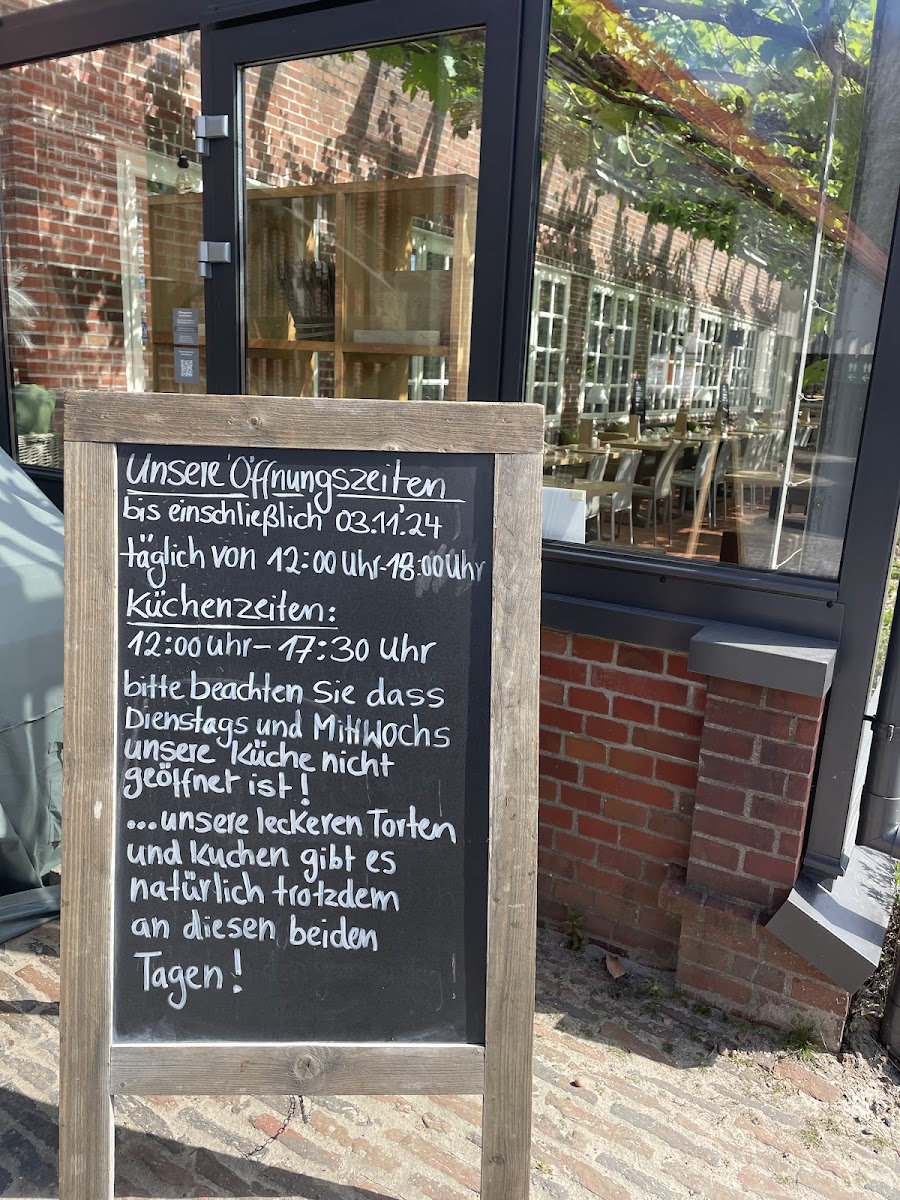 Unsere Öffnungszeiten
bis einschließlich 03.11.24
täglich von 12:00 Uhr-18:00 Uhr
Küchenzeiten:
12:00 Uhr – 17:30 Uhr
bitte beachten Sie dass
Dienstags und Mittwochs
unsere Küche nicht
geöffnet ist!
...unsere leckeren Torten
und Kuchen gibt es
natürlich trotzdem
an diesen beiden
Tagen!